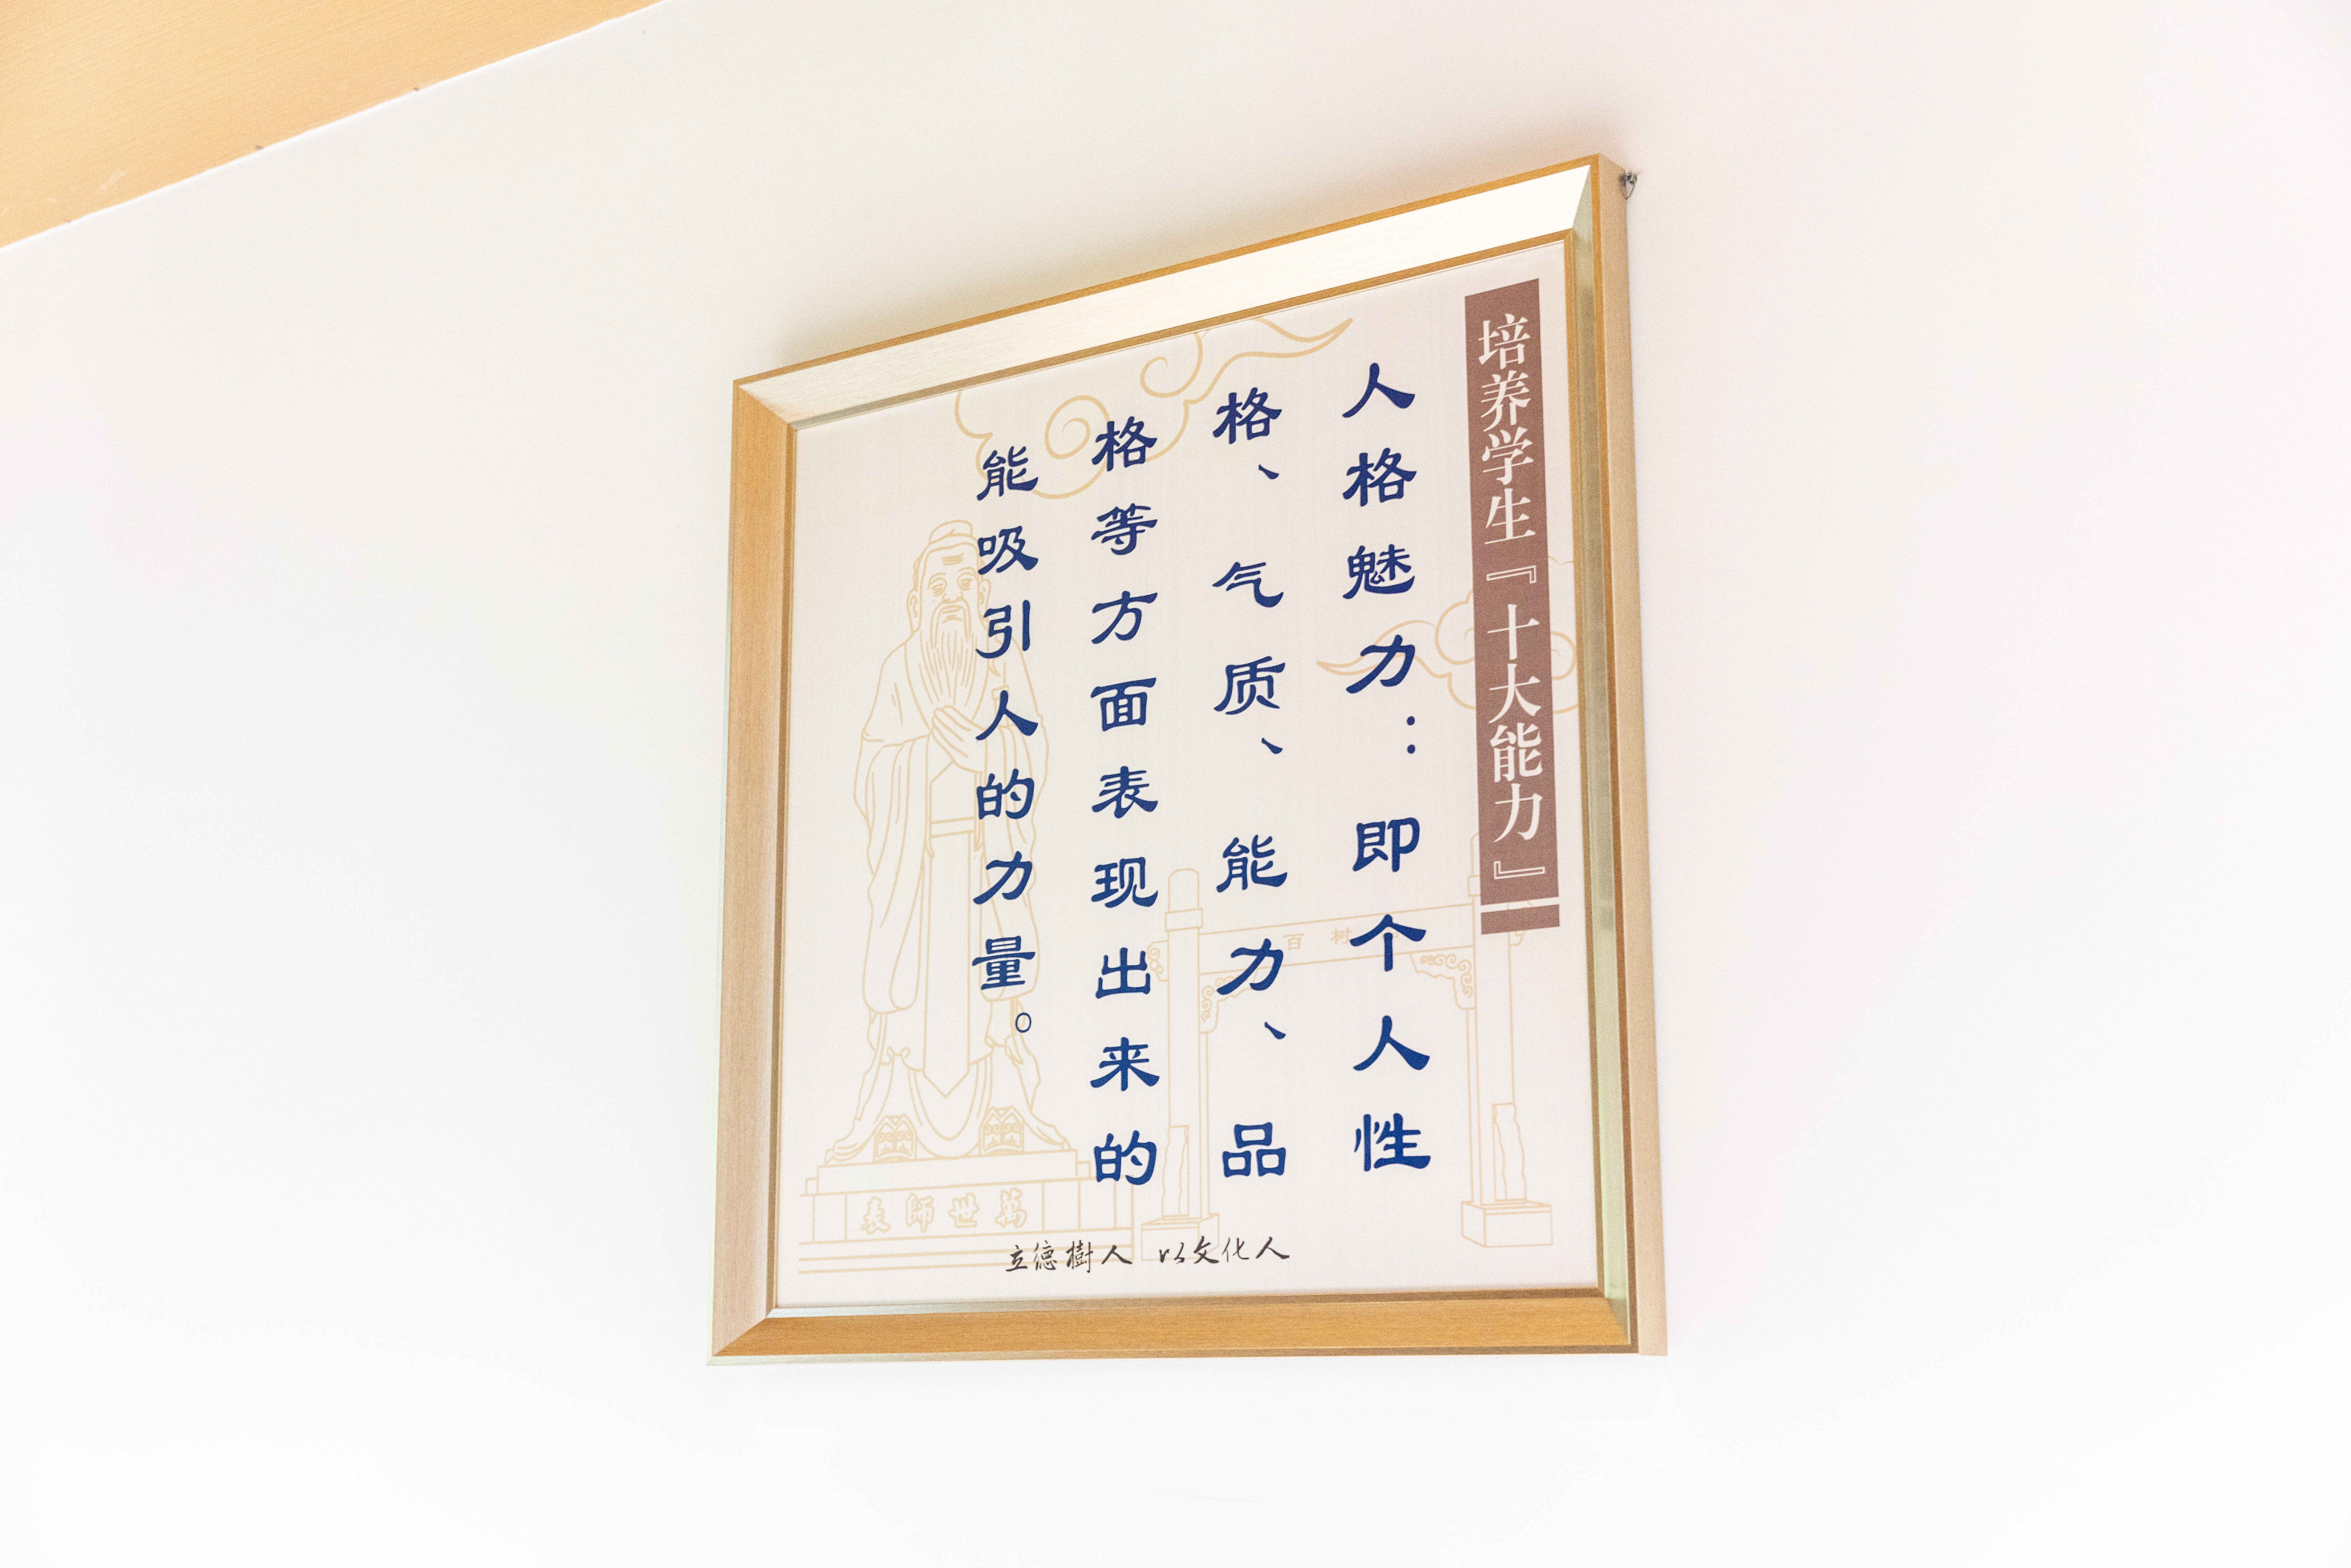 培养学生『十大能力』
人格魅力：即个人性
格、气质、能力、品
格等方面表现出来的
能吸引人的力量。
百树
萬世師表
立德樹人 以文化人